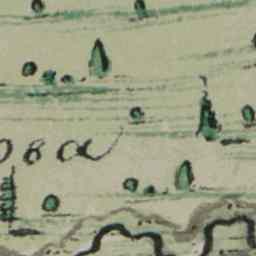 ова